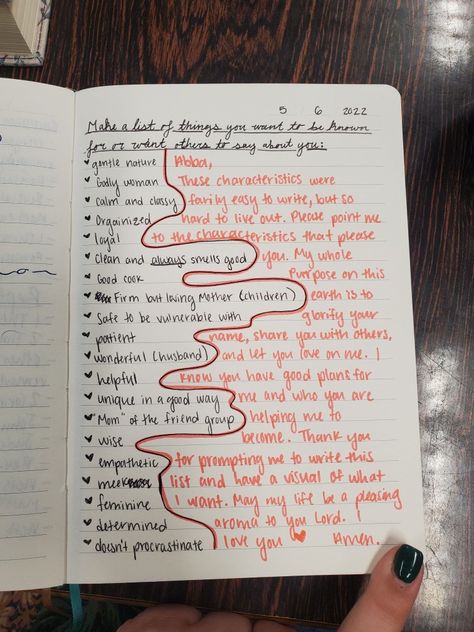 5 6 2022
Make a list of things you want to be known
for or want others to say about you:
gentle nature
Godly woman
Calm and classy
Orgainized
loyal
Clean and always smells good
Good cook
Firm but loving Mother (children)
Safe to be vulnerable with
patient
wonderful (husband)
helpful
unique in a good way
"Mom" of the friend group
wise
empathetic
meek
feminine
determined
doesn't procrastinate
Abba,
These characteristics were
farily easy to write, but so
hard to live out. Please point me
to the characteristics that please
you. My whole
Purpose on this
earth is to
glorify your
name, share you with others,
and let you love on me. I
know you have good plans for
me and who you are
helping me to
become. Thank you
for prompting me to write this
list and have a visual of what
I want. May my life be a pleasing
aroma to you Lord. I
love you Amen.